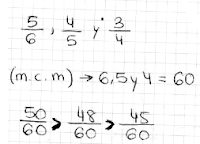 5/6, 4/5 y 3/4
(m.c.m) → 6,5 y 4 = 60
50/60 > 48/60 > 45/60